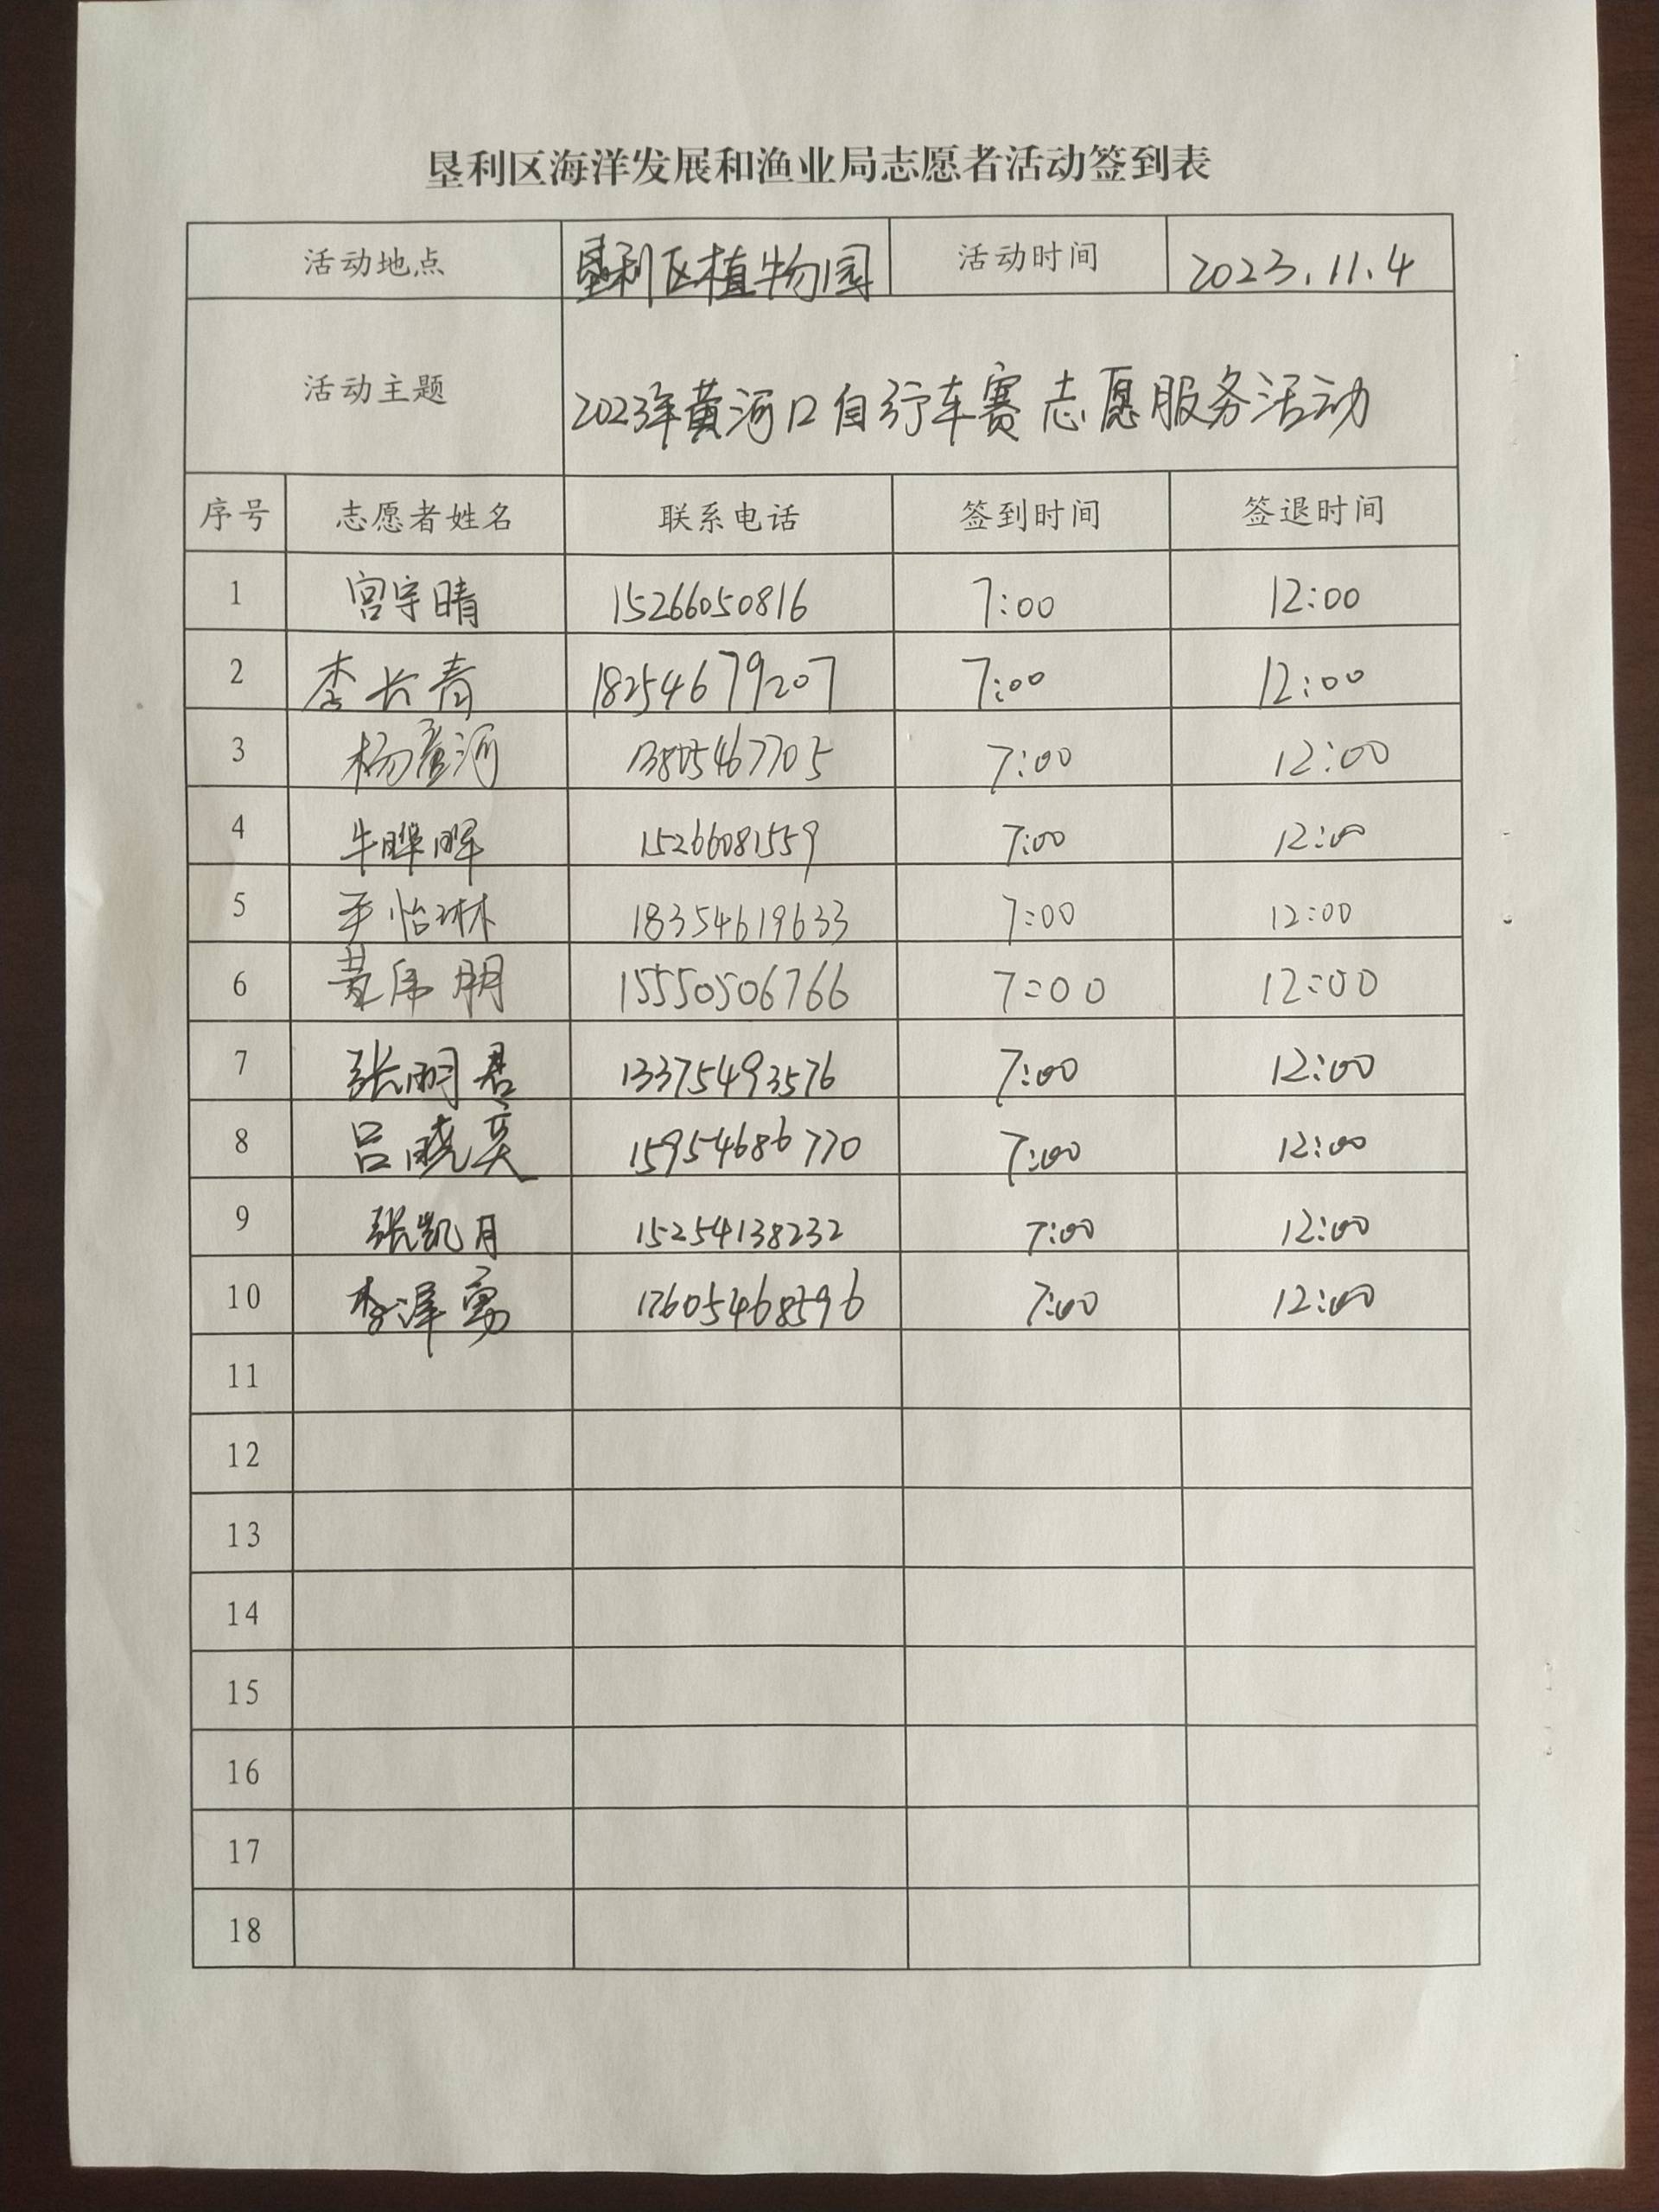 垦利区海洋发展和渔业局志愿者活动签到表
活动地点 垦利区植物园 活动时间 2023.11.4
活动主题 2023年黄河口自行车赛志愿服务活动
序号 志愿者姓名 联系电话 签到时间 签退时间
1 宫宇晴 15266050816 7:00 12:00
2 李长青 18254679207 7:00 12:00
3 杨黄河 13805467705 7:00 12:00
4 牛晔晖 15266081559 7:00 12:00
5 平怡琳 18354619633 7:00 12:00
6 黄伟朋 15550506766 7:00 12:00
7 张明君 13375493576 7:00 12:00
8 吕晓奕 15954686770 7:00 12:00
9 张凯月 15254138232 7:00 12:00
10 李泽寓 17605468596 7:00 12:00
11
12
13
14
15
16
17
18